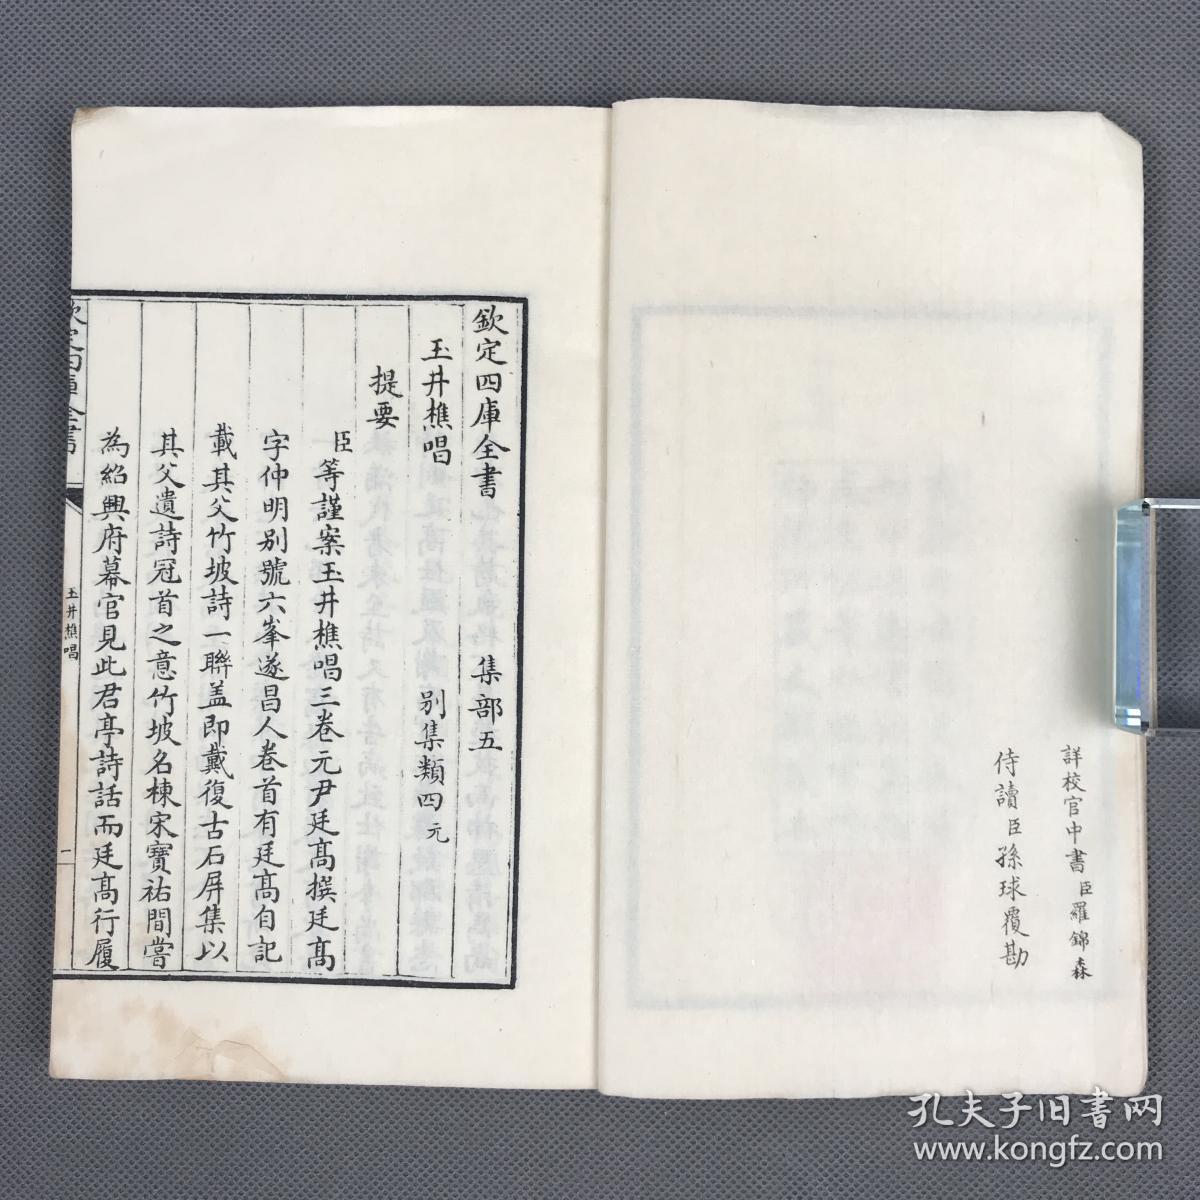 詳校官中書臣羅錦森
侍讀臣孫球覆勘
欽定四庫全書 集部五
玉井樵唱 別集類四元
提要
臣等謹案玉井樵唱三卷元尹廷高撰廷高
字仲明別號六峯遂昌人卷首有廷高自記
載其父竹坡詩一聯盖即戴復古石屏集以
其父遺詩冠首之意竹坡名棟宋寶祐間嘗
為紹興府幕官見此君亭詩話而廷高行履
欽定四庫全書
玉井樵唱
一
孔夫子旧书网
www.kongfz.com